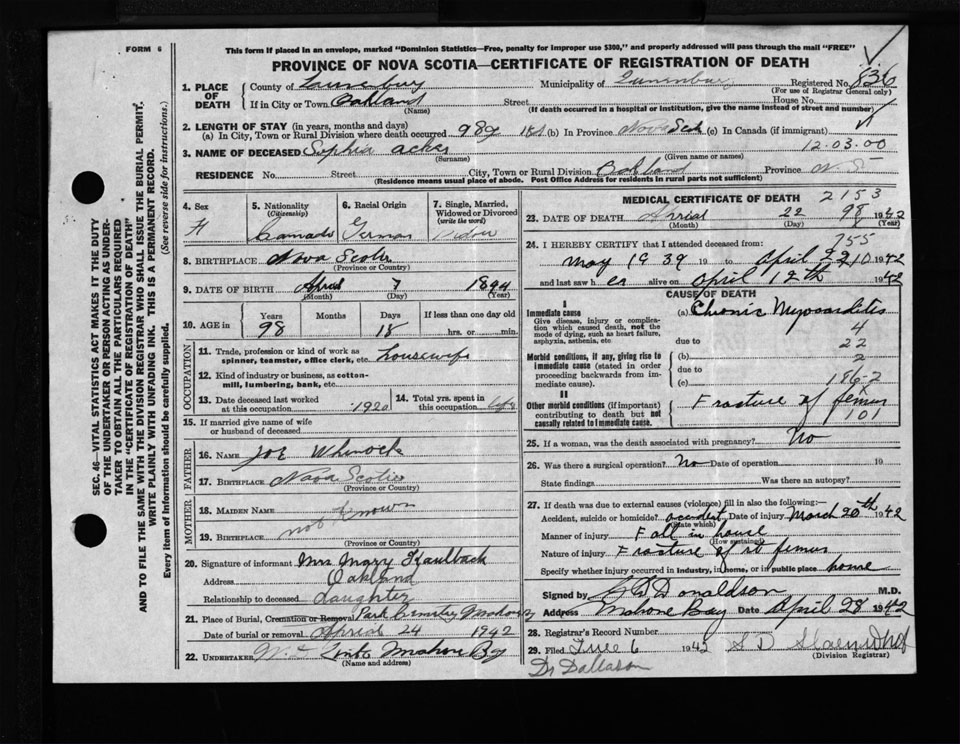 FORM 6
This form if placed in an envelope, marked "Dominion Statistics—Free, penalty for improper use $300," and properly addressed will pass through the mail "FREE"
PROVINCE OF NOVA SCOTIA—CERTIFICATE OF REGISTRATION OF DEATH
1. PLACE OF DEATH
County of Lunenburg Municipality of Lunenburg Registered No. 836
(For use of Registrar General only)
If in City or Town Oakland Street House No.
(Name) (If death occurred in a hospital or institution, give the name instead of street and number)
2. LENGTH OF STAY (in years, months and days)
(a) In City, Town or Rural Division where death occurred 98y 18d (b) In Province Nova Sco (c) In Canada (if immigrant)
12.03.00
3. NAME OF DECEASED Sophia Acker
(Surname) (Given name or names)
RESIDENCE No. Street City, Town or Rural Division Oakland Province N.S
(Residence means usual place of abode. Post Office Address for residents in rural parts not sufficient)
4. Sex
F
5. Nationality
(Citizenship)
Canada
6. Racial Origin
German
7. Single, Married, Widowed or Divorced
(write the word)
Widow
8. BIRTHPLACE Nova Scotia
(Province or Country)
9. DATE OF BIRTH April 7
(Month) (Day) (Year)
10. AGE in
Years Months Days If less than one day old
98 18 hrs. or min.
OCCUPATION
11. Trade, profession or kind of work as spinner, teamster, office clerk, etc. housewife
12. Kind of industry or business, as cotton-mill, lumbering, bank, etc.
13. Date deceased last worked at this occupation 1920
14. Total yrs. spent in this occupation life
15. If married give name of wife or husband of deceased
FATHER
16. NAME Joe
17. BIRTHPLACE Nova Scotia
(Province or Country)
MOTHER
18. MAIDEN NAME
19. BIRTHPLACE not known
(Province or Country)
20. Signature of informant Mrs Mary Kaulback
Address Oakland
Relationship to deceased daughter
21. Place of Burial, Cremation or Removal Park Cemetery Mahone
Date of burial or removal April 24 1942
22. UNDERTAKER Mahone By
(Name and address)
MEDICAL CERTIFICATE OF DEATH
2153
23. DATE OF DEATH April 22 98 1942
(Month) (Day) (Year)
24. I HEREBY CERTIFY that I attended deceased from:
755
May 1939 19 to April 1942
and last saw her alive on April 12th 1942
CAUSE OF DEATH
I
Immediate cause
Give disease, injury or complication which caused death, not the mode of dying, such as heart failure, asphyxia, asthenia, etc.
(a) Chronic Myocarditis
4
due to
22
Morbid conditions, if any, giving rise to immediate cause (stated in order proceeding backwards from immediate cause).
(b)
2
due to
(c) 186-2
II
Other morbid conditions (if important) contributing to death but not causally related to immediate cause.
Fracture of femur
101
25. If a woman, was the death associated with pregnancy? No
26. Was there a surgical operation? No Date of operation 19
State findings Was there an autopsy?
27. If death was due to external causes (violence) fill in also the following:—
Accident, suicide or homicide? accident Date of injury March 20th 1942
(State which)
Manner of injury Fall in house
(How sustained)
Nature of injury Fracture of rt femur
Specify whether injury occurred in industry, in home, or in public place home
Signed by Donaldson M.D.
Address Mahone Bay Date April 28 1942
28. Registrar's Record Number
29. Filed June 6 1942
(Division Registrar)
SEC. 46—VITAL STATISTICS ACT MAKES IT THE DUTY
OF THE UNDERTAKER OR PERSON ACTING AS UNDER-
TAKER TO OBTAIN ALL THE PARTICULARS REQUIRED
IN THE "CERTIFICATE OF REGISTRATION OF DEATH"
AND TO FILE THE SAME WITH THE DIVISION REGISTRAR WHO SHALL ISSUE THE BURIAL PERMIT.
WRITE PLAINLY WITH UNFADING INK. THIS IS A PERMANENT RECORD.
Every item of Information should be carefully supplied. (See reverse side for instructions.)